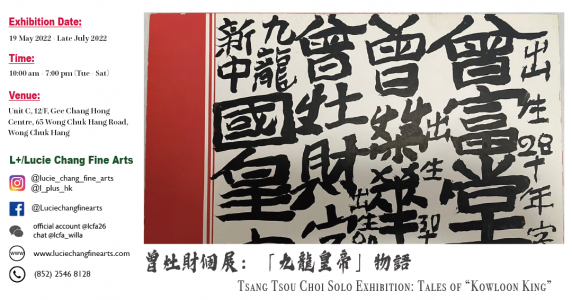 Exhibition Date:
19 May 2022 - Late July 2022
Time:
10:00 am - 7:00 pm (Tue - Sat)
Venue:
Unit C, 12/F, Gee Chang Hong
Centre, 65 Wong Chuk Hang Road,
Wong Chuk Hang
L+/Lucie Chang Fine Arts
@lucie_chang_fine_arts
@l_plus_hk
@Luciechangfinearts
official account @lcfa26
chat @lcfa_willa
www
www.luciechangfinearts.com
(852) 2546 8128
出生28十年字
曾富堂
曾榮華
出生
曾灶財
九龍
新中
國皇
曾灶財個展：「九龍皇帝」物語
Tsang Tsou Choi Solo Exhibition: Tales of “Kowloon King”